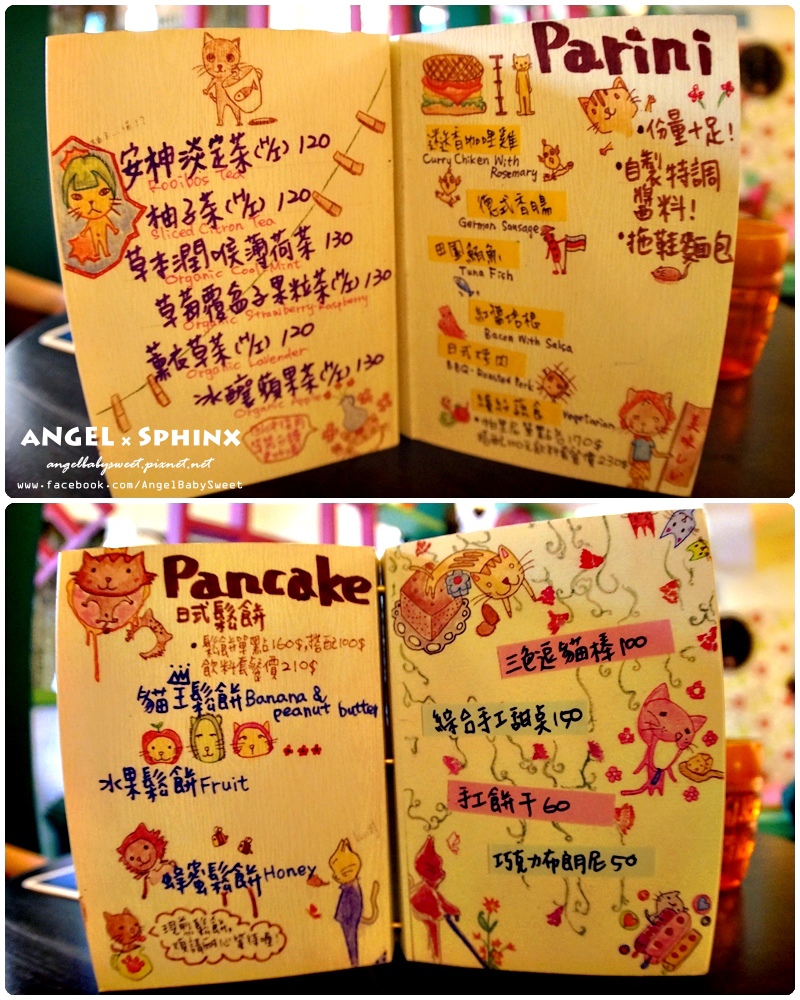 安神淡定茶(壺) 120
Rooibos Tea
柚子茶(壺) 120
Sliced Citron Tea
草本潤喉薄荷茶 130
Organic Cool Mint
草莓覆盆子果粒茶(壺) 130
Organic Strawberry-Raspberry
薰衣草茶(壺) 120
Organic Lavender
冰釀蘋果茶(壺) 130
Organic Apple
Parini
迷迭香咖哩雞
Curry Chiken With
Rosemary
德式香腸
German Sausage
田園鮪魚
Tuna Fish
紅醬培根
Bacon With Salsa
日式烤肉
BBQ-Roasted Pork
繽紛蔬食 Vegetarian
•帕里尼單點180$
搭配100元飲料套餐價230$
•份量十足!
•自製特調
醬料!
•拖鞋麵包
美味しい
ANGEL x SPHINX
angelbabysweet.pixnet.net
www.facebook.com/AngelBabySweet
Pancake
日式鬆餅
•鬆餅單點160$,搭配100$
飲料套餐價210$
貓王鬆餅Banana &
peanut butter
水果鬆餅Fruit
蜂蜜鬆餅Honey
現煎鬆餅,
煩請耐心等待喔!
三色逗貓棒100
綜合手工甜桌150
手工餅干60
巧克力布朗尼50